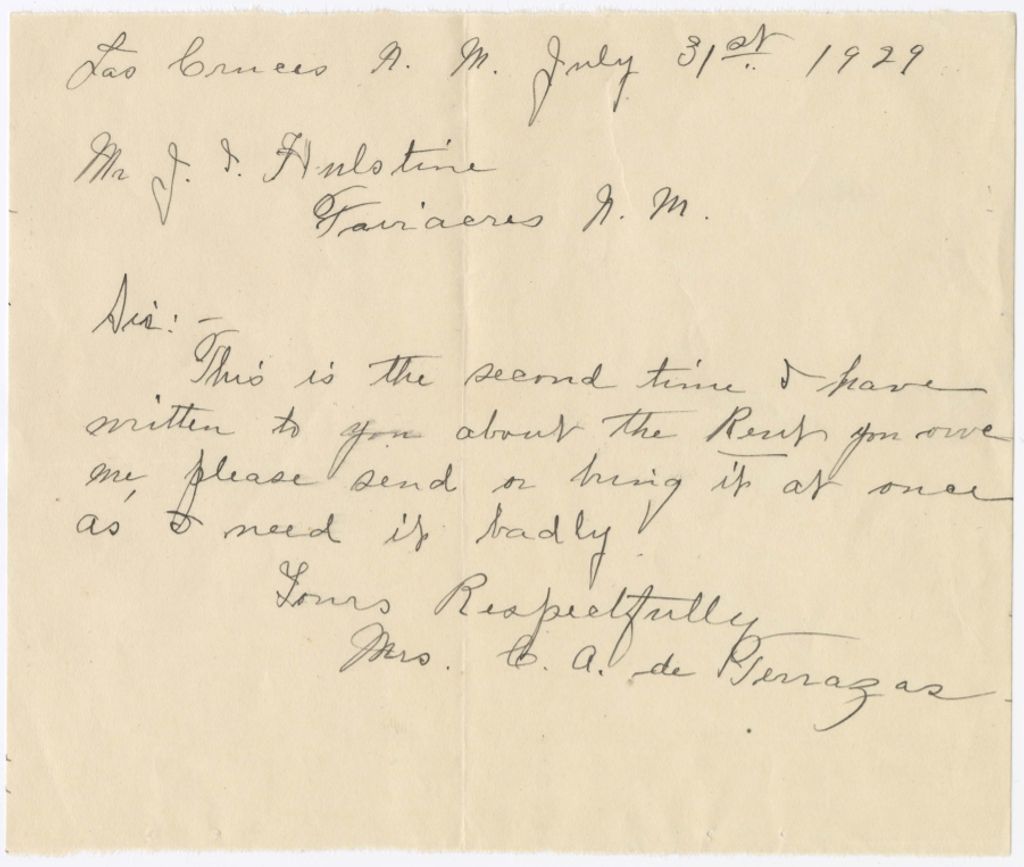 Las Cruces N. M. July 31st. 1929
Mr J. I. Hulstine
Fairacres N. M.
Sir: -
This is the second time I have
written to you about the Rent you owe
me, please send or bring it at once
as I need it badly.
Yours Respectfully
Mrs. C. A. de Terrazas